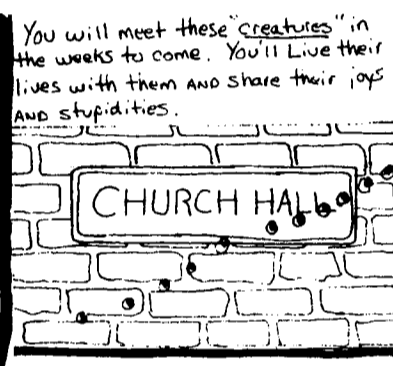 You will meet these "creatures" in
the weeks to come. You'll Live their
lives with them AND share their joys
AND stupidities.
CHURCH HALL